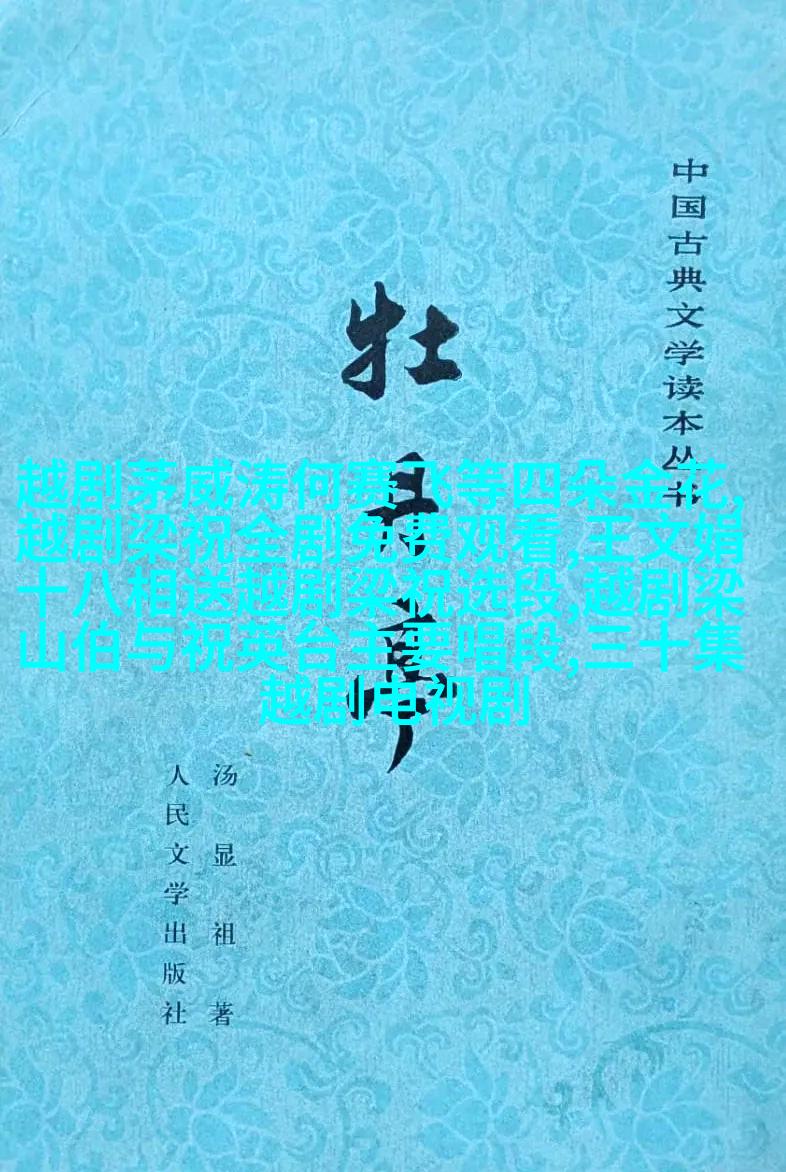 中国古典文学读本丛书
牡丹亭
越剧茅威涛何赛飞等四朵金花,
越剧梁祝全剧免费观看,王文娟
十八相送越剧梁祝选段,越剧梁
山伯与祝英台主要唱段,三十集
越剧电视剧
汤显祖著
人民文学出版社